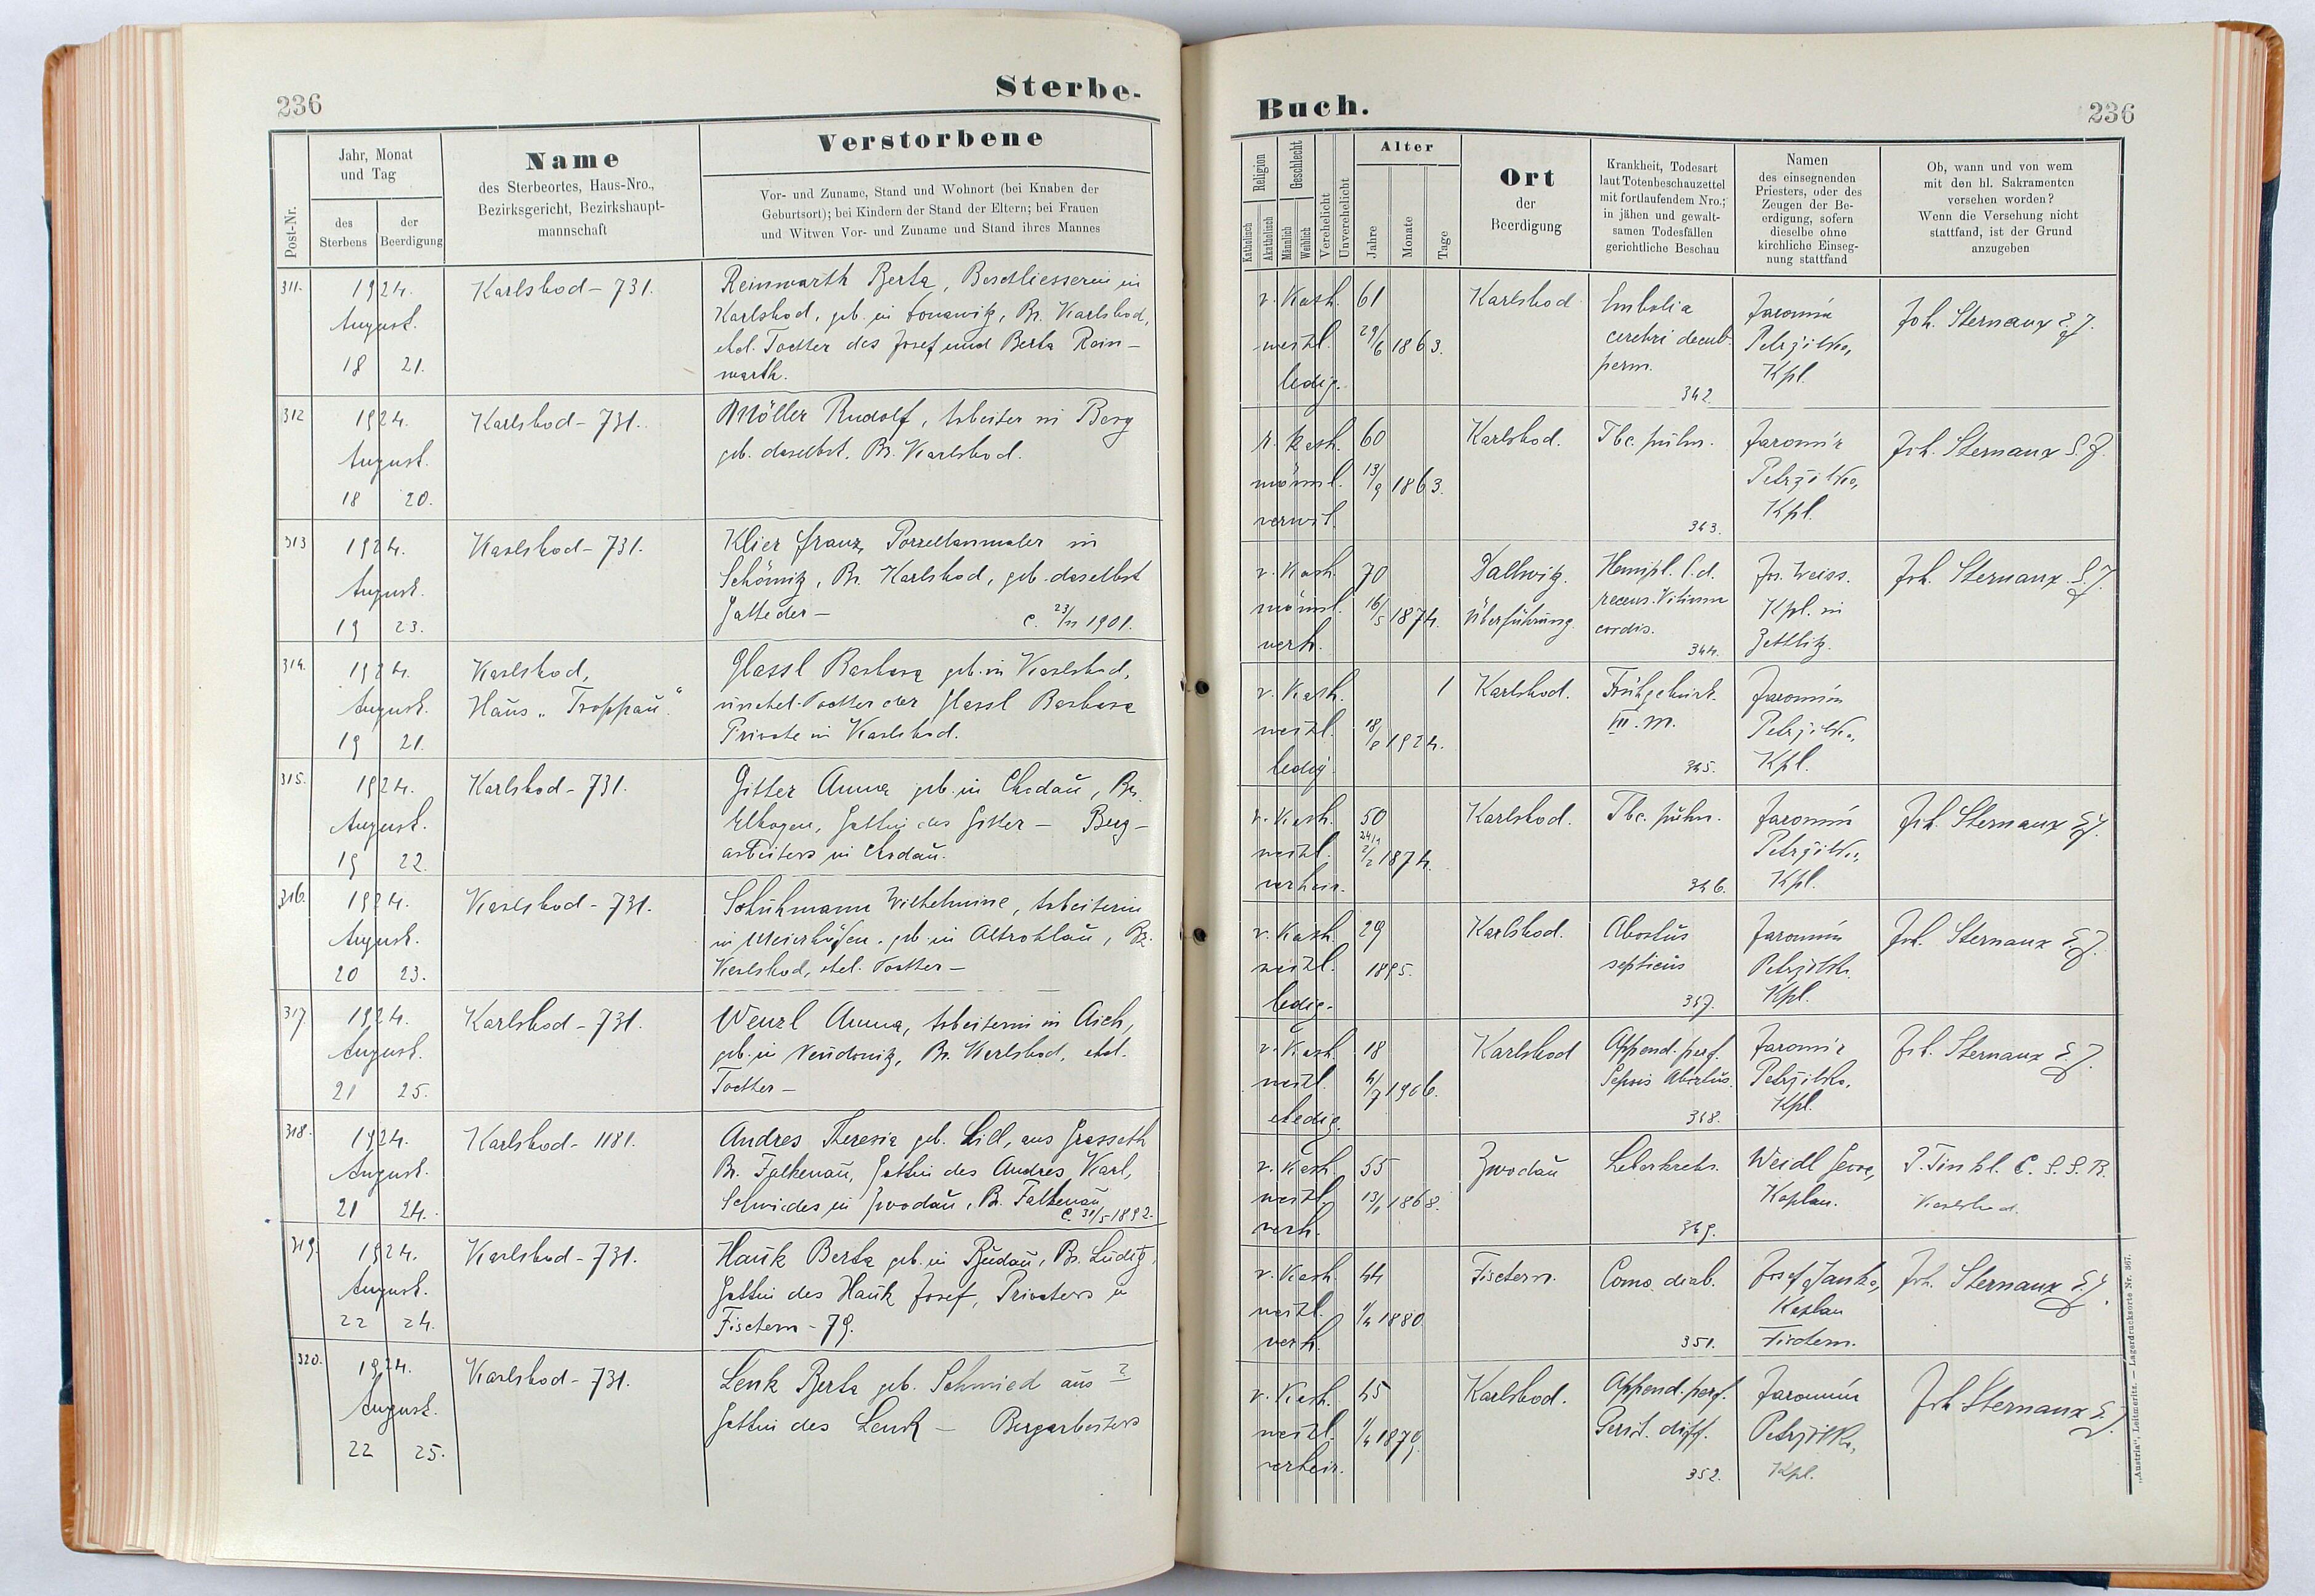 236
Sterbe-
Post-Nr.
Jahr, Monat
und Tag
des
Sterbens
der
Beerdigung
Name
des Sterbeortes, Haus-Nro.,
Bezirksgericht, Bezirkshaupt-
mannschaft
Verstorbene
Vor- und Zuname, Stand und Wohnort (bei Knaben der
Geburtsort); bei Kindern der Stand der Eltern; bei Frauen
und Witwen Vor- und Zuname und Stand ihres Mannes
311.
1924.
August.
18 21.
Karlsbad - 731.
Reinwarth Berta, Beschliesserin in
Karlsbad, geb. in Donawitz, Bz. Karlsbad,
ehel. Tochter des Josef und Berta Rein-
warth.
312
1924.
August.
18 20.
Karlsbad - 731.
Möller Rudolf, Arbeiter in Berg
geb. daselbst. Bz. Karlsbad.
313
1924.
August.
19 23.
Karlsbad - 731.
Klier Franz, Porzellanmaler in
Schömitz, Bz. Karlsbad, geb. daselbst
Gatte der — C. 23/11 1901.
314.
1924.
August.
19 21.
Karlsbad,
Haus „Troppau“
Glassl Barbara geb. in Karlsbad,
unehel. Tochter der Glassl Barbara
Private in Karlsbad.
315.
1924.
August.
19 22.
Karlsbad - 731.
Gitter Anna geb. in Chodau, Bz.
Elbogen, Gattin des Gitter — Berg-
arbeiters in Chodau.
316.
1924.
August.
20 23.
Karlsbad - 731.
Schuhmann Wilhelmine, Arbeiterin
in Meierhöfen. geb in Altrohlau, Bz.
Karlsbad, ehel. Tochter —
317
1924.
August.
21 25.
Karlsbad - 731.
Wenzl Anna, Arbeiterin in Aich,
geb. in Neudonitz, Bz. Karlsbad, ehel.
Tochter —
318.
1924.
August.
21 24.
Karlsbad - 1181.
Andres Theresia geb. Lill, aus Grasseth
Bz. Falkenau, Gattin des Andres Karl,
Schmiedes in Zwodau, Bz. Falkenau
C. 31/5 1892.
319.
1924.
August.
22 24.
Karlsbad - 731.
Hauk Berta geb. in Pudau, Bz. Luditz,
Gattin des Hauk Josef, Privaters in
Fischern - 79.
320.
1924.
August.
22 25.
Karlsbad - 731.
Lenk Berta geb. Schmied aus ?
Gattin des Lenk — Bergarbeiters
Buch.
236
Religion
Katholisch
Akatholisch
Geschlecht
Männlich
Weiblich
Verehelicht
Unverehelicht
Alter
Jahre
Monate
Tage
Ort
der
Beerdigung
Krankheit, Todesart
laut Totenbeschauzettel
mit fortlaufendem Nro.;
in jähen und gewalt-
samen Todesfällen
gerichtliche Beschau
Namen
des einsegnenden
Priesters, oder des
Zeugen der Be-
erdigung, sofern
dieselbe ohne
kirchliche Einseg-
nung stattfand
Ob, wann und von wem
mit den hl. Sakramenten
versehen worden?
Wenn die Versehung nicht
stattfand, ist der Grund
anzugeben
r. Kath.
weibl.
ledig.
61
29/6 1863.
Karlsbad
Embolia
cerebri decub.
perm.
342.
Jaromír
Petrzilka,
Kpl.
Joh. Sternaux S.J.
r. kath.
männl.
verwit.
60
13/9 1863.
Karlsbad.
Tbc. pulm.
343.
Jaromír
Petrzilka,
Kpl.
Joh. Sternaux S.J.
r. Kath.
männl.
verh.
70
16/5 1874.
Dallwitz.
Überführung.
Hemipl. l. d.
recens. Vitium
cordis.
344.
Jos. Weiss.
Kpl. in
Zettlitz.
Joh. Sternaux S.J.
r. Kath.
weibl.
ledig
1
18/8 1924.
Karlsbad.
Frühgeburt.
VII. M.
345.
Jaromír
Petrzilka,
Kpl.
r. Kath.
weibl.
verheir.
50
2/2 1874.
Karlsbad.
Tbc. pulm.
346.
Jaromír
Petrzilka,
Kpl.
Joh. Sternaux S.J.
r. Kath.
weibl.
ledig.
29
1895.
Karlsbad.
Abortus
septicus
347.
Jaromír
Petrzilka.
Kpl.
Joh. Sternaux S.J.
r. Kath.
weibl.
ledig.
18
4/7 1906.
Karlsbad
Append. perf.
Sepsis Abortus.
348.
Jaromír
Petrzilka,
Kpl.
Joh. Sternaux S.J.
r. Kath.
weibl.
verh.
55
1868.
Zwodau
Leberkrebs.
349.
Weidl Georg,
Kaplan.
P. Tinkl. C. S. S. R.
Karlsbad.
r. Kath.
weibl.
verh.
44
1/4 1880.
Fischern.
Coma diab.
351.
Josef Janka,
Kaplan
Fischern.
Joh. Sternaux S.J.
r. Kath.
weibl.
verheir.
45
1/4 1879.
Karlsbad.
Append. perf.
Perit. diff.
352.
Jaromír
Petrzilka,
Kpl.
Joh. Sternaux S.J.
„Austria“, Leitmeritz. — Lagerdrucksorte Nr. 367.